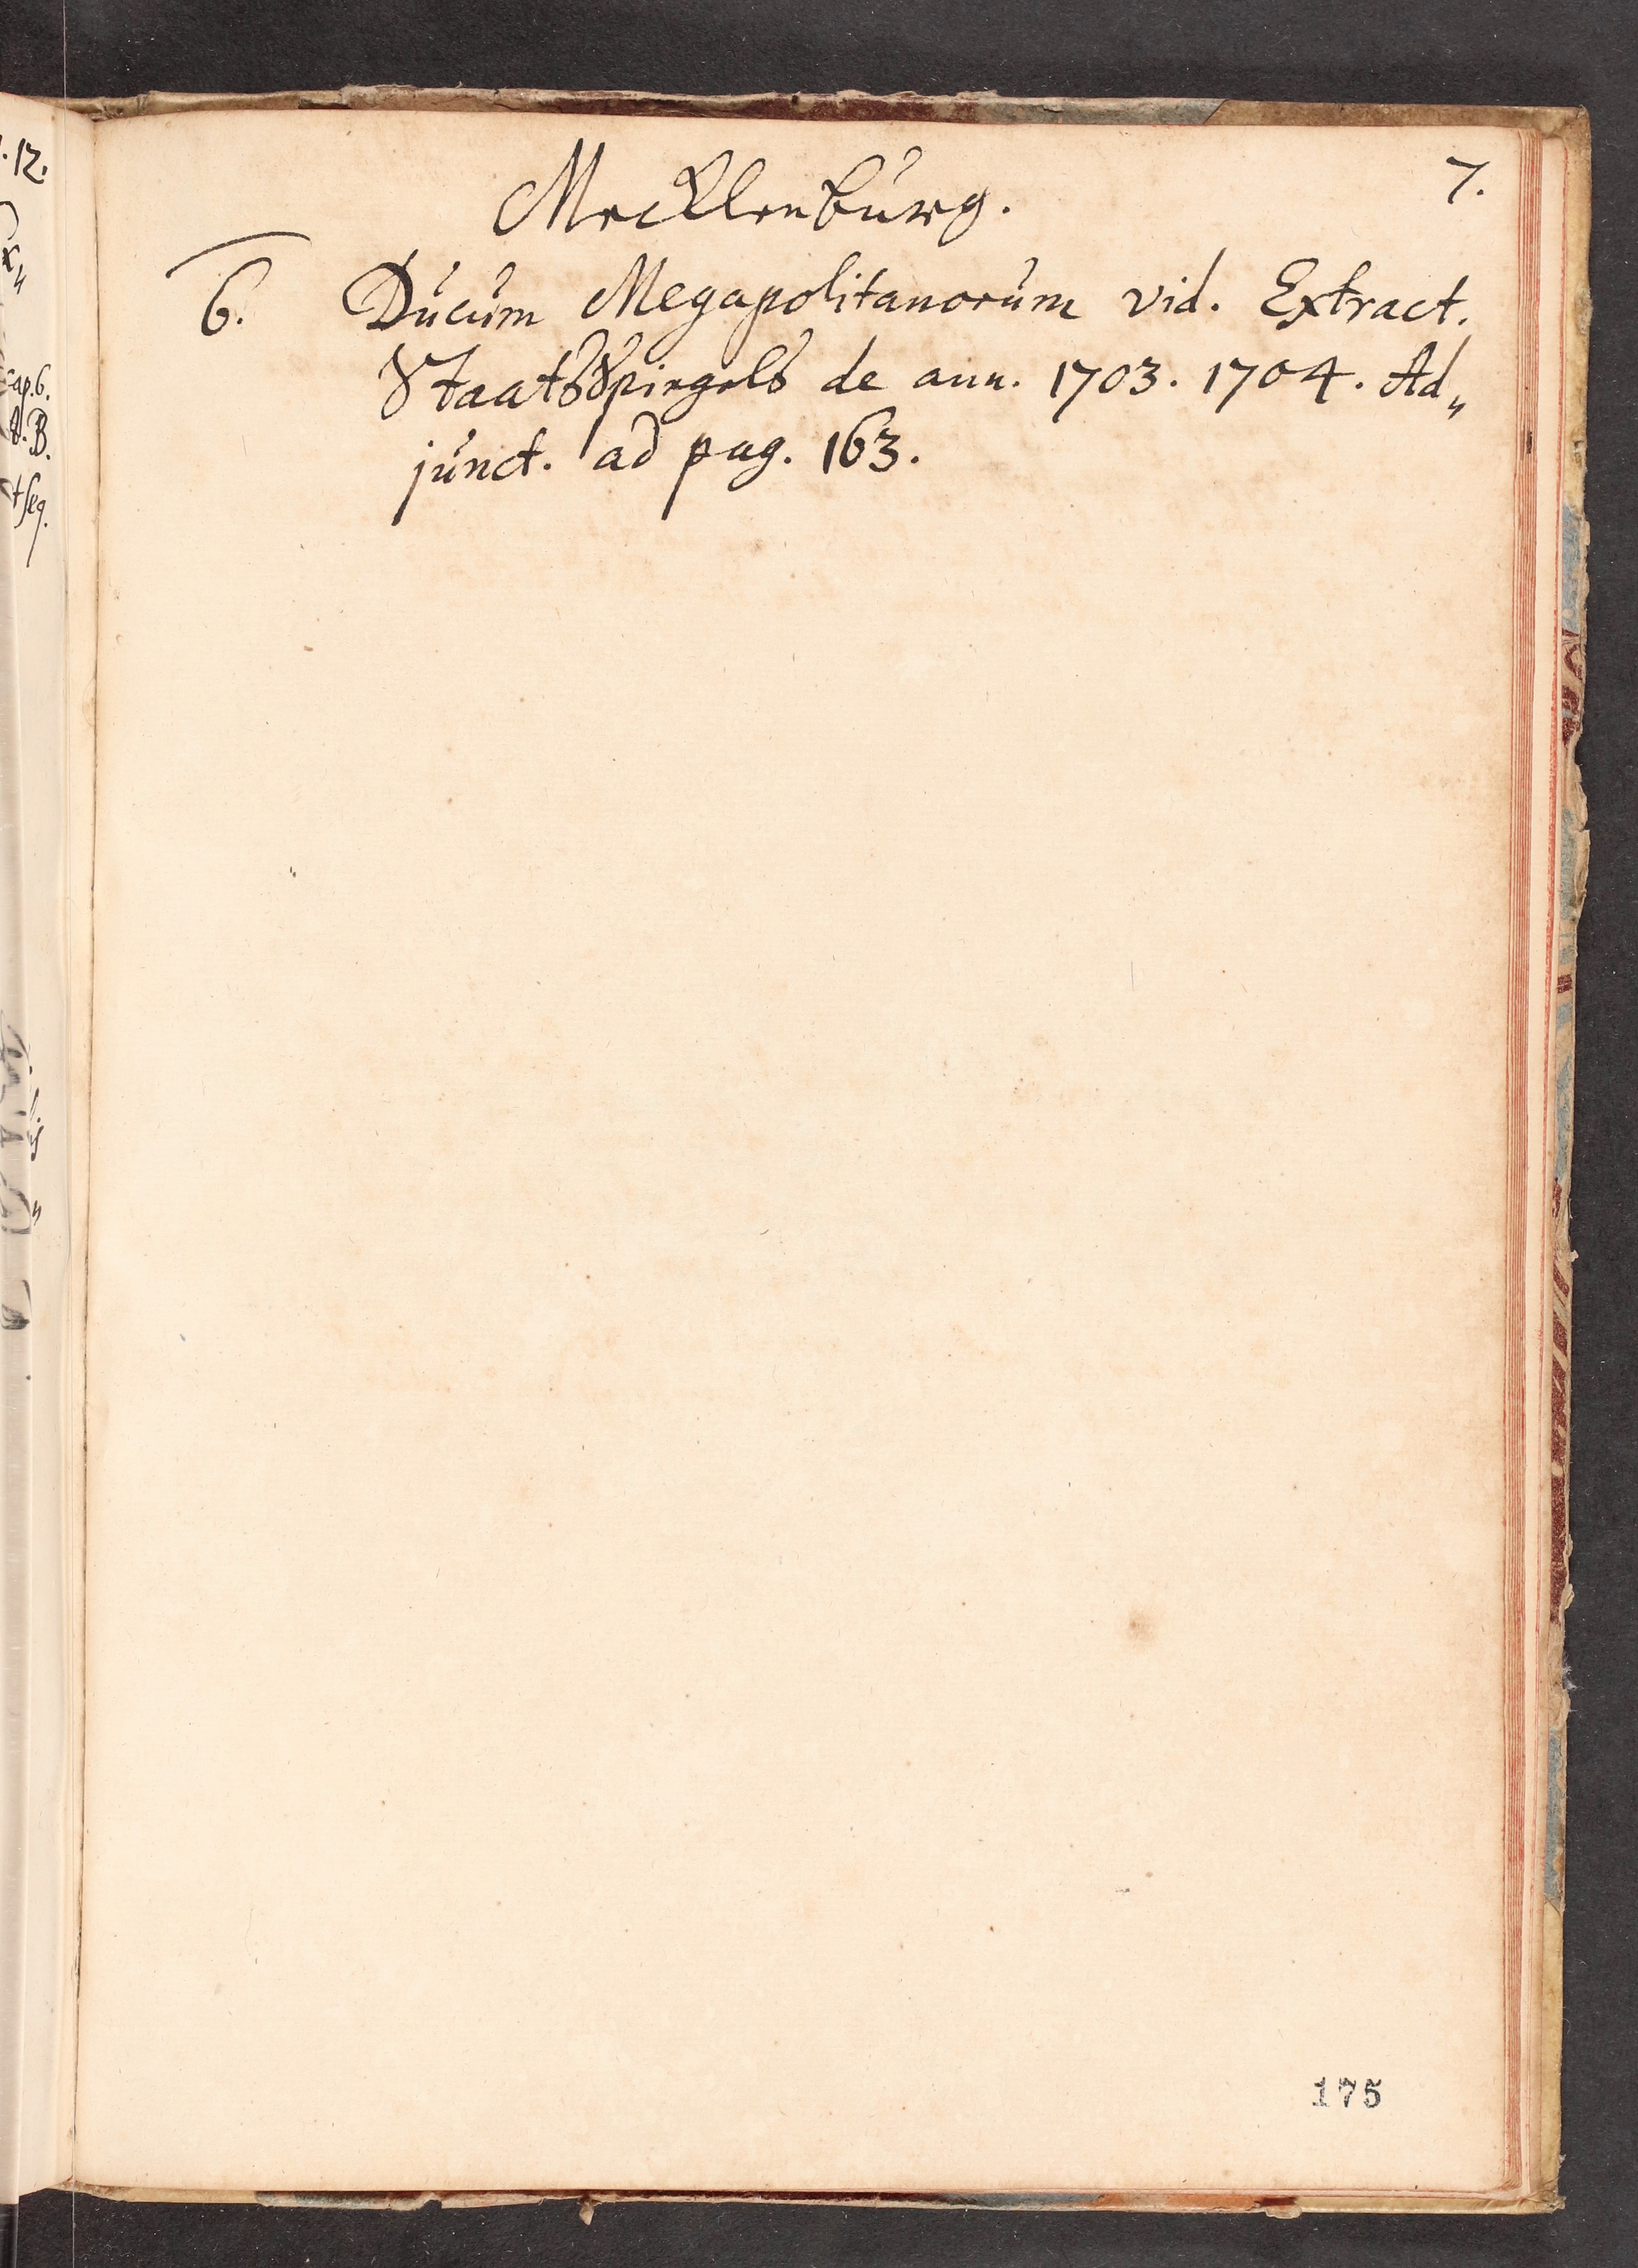 Mecklenburg.
7.
6. Ducum Megapolitanorum vid. Extract.
StaatsSpiegels de ann. 1703. 1704. Ad„
junct. ad pag. 163.
175
.12.
cap.6.
B.
t seq.